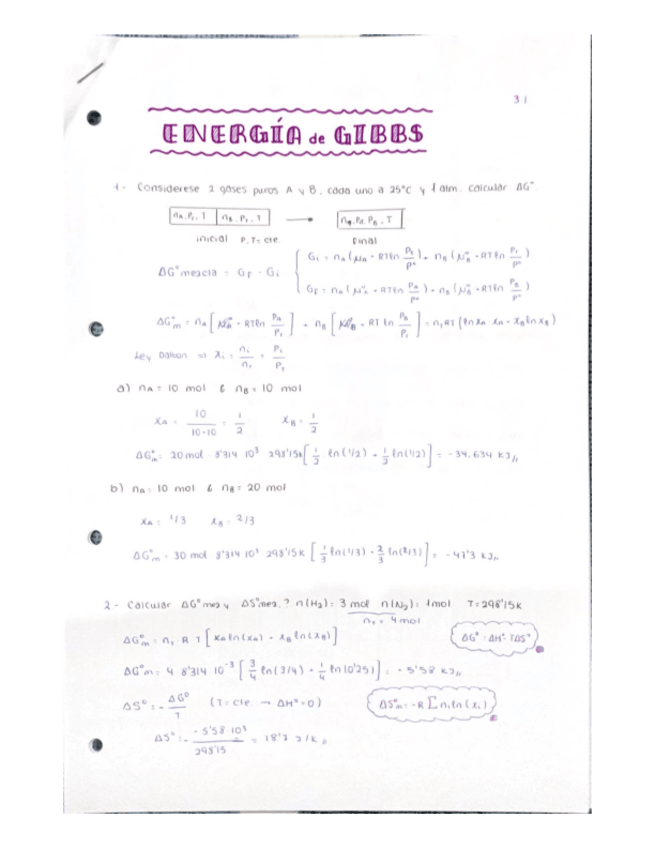 31
ENERGÍA de GIBBS
1.- Considerese 2 gases puros A y B, cada uno a 25°C y 1 atm. calcular ΔG°
nA, P1, T | nB, P1, T → nT, PA, PB, T
inicial P, T = cte. Final
Gi = nA (μA° + RTln P1/P°) + nB (μB° + RTln P1/P°)
ΔG° mezcla = GF - Gi
GF = nA (μA° + RTln PA/P°) + nB (μB° + RTln PB/P°)
ΔG°m = nA [μA° + RTln PA/P1] + nB [μB° + RT ln PB/P1] = nT RT (ln xA xA + xB ln xB)
Ley Dalton ⇒ xi = ni/nT = Pi/PT
a) nA = 10 mol & nB = 10 mol
xA = 10/10+10 = 1/2 xB = 1/2
ΔG°m = 20 mol 8'314 10³ 298'15K [1/2 ln (1/2) + 1/2 ln (1/2)] = -34.634 kJ//
b) nA = 10 mol & nB = 20 mol
xA = 1/3 xB = 2/3
ΔG°m = 30 mol 8'314 10³ 298'15K [1/3 ln (1/3) + 2/3 ln (2/3)] = -47'3 kJ//
2.- Calcular ΔG°mez y ΔS°mez.? n(H2) = 3 mol n(N2) = 1mol T = 298'15K
nT = 4 mol
ΔG°m = nT R T [xA ln (xA) + xB ln (xB)] ΔG° = ΔH° - TΔS°
ΔG°m = 4 8'314 10⁻³ [3/4 ln (3/4) + 1/4 ln (0'25)] = -5'58 kJ//
ΔS° = - ΔG°/T (T = cte → ΔH° = 0) ΔS°m = -R Σ ni ln (xi)
ΔS° = - -5'58 10³/298'15 = 18'7 J/K //